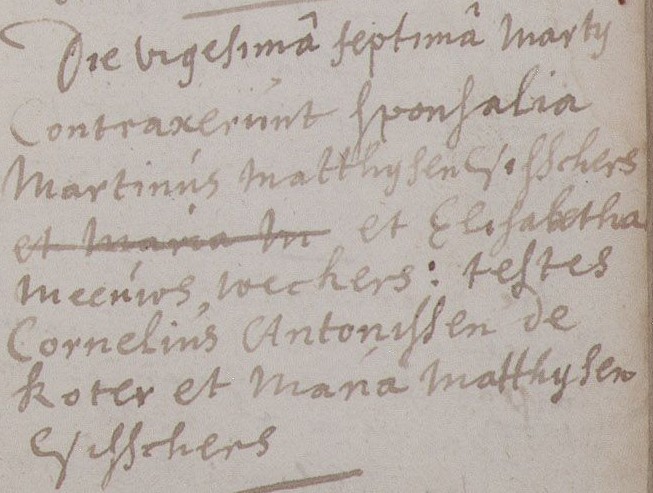 Die vigesimâ septimâ Martij
Contraxerúnt sponsalia
Martinús Matthijsen Visschers
~~et Maria M~~ et Elisabetha
Meeúws, weckers: testes
Corneliús Antonissen de
koter et Maria Matthijsen
Visschers